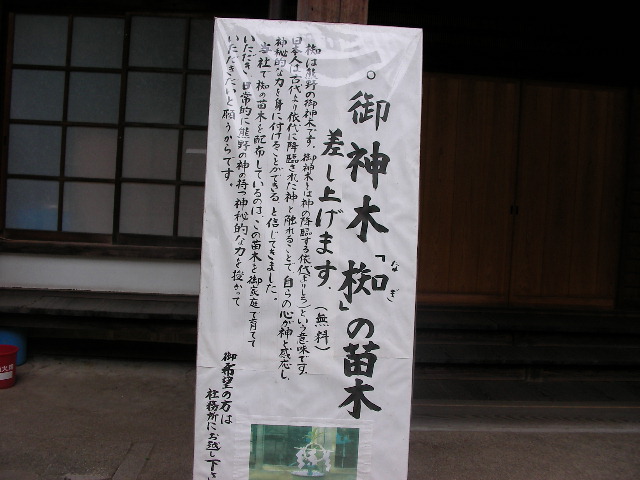 。御神木「椥」の苗木
なぎ
差し上げます。(無料)
椥は熊野の御神木です。御神木とは神の降臨する依代(よりしろ)という意味です。
日本人は古代より依代に降臨された神と触れることで、自らの心が神と感応し、
神秘的な力を身に付けることができると信じてきました。
当社で椥の苗木を配布しているのは、この苗木を御家庭で育てて
いただき、日常的に熊野の神の持つ神秘的な力を授かって
いただきたいと願うからです。
御希望の方は
社務所にお越し下さ